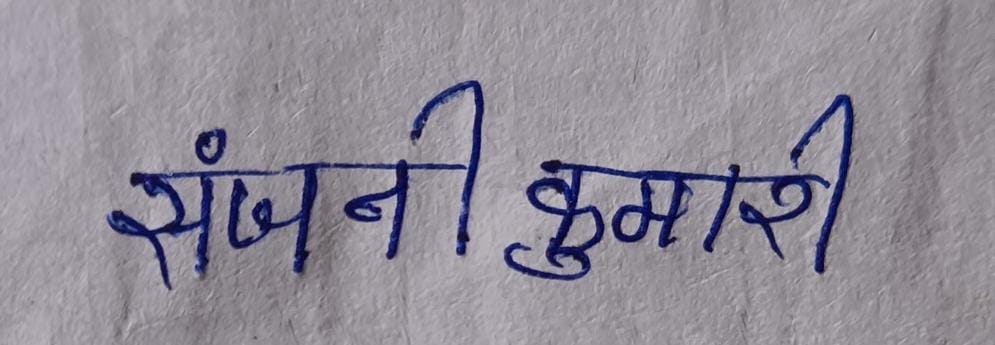 संजनी कुमारी